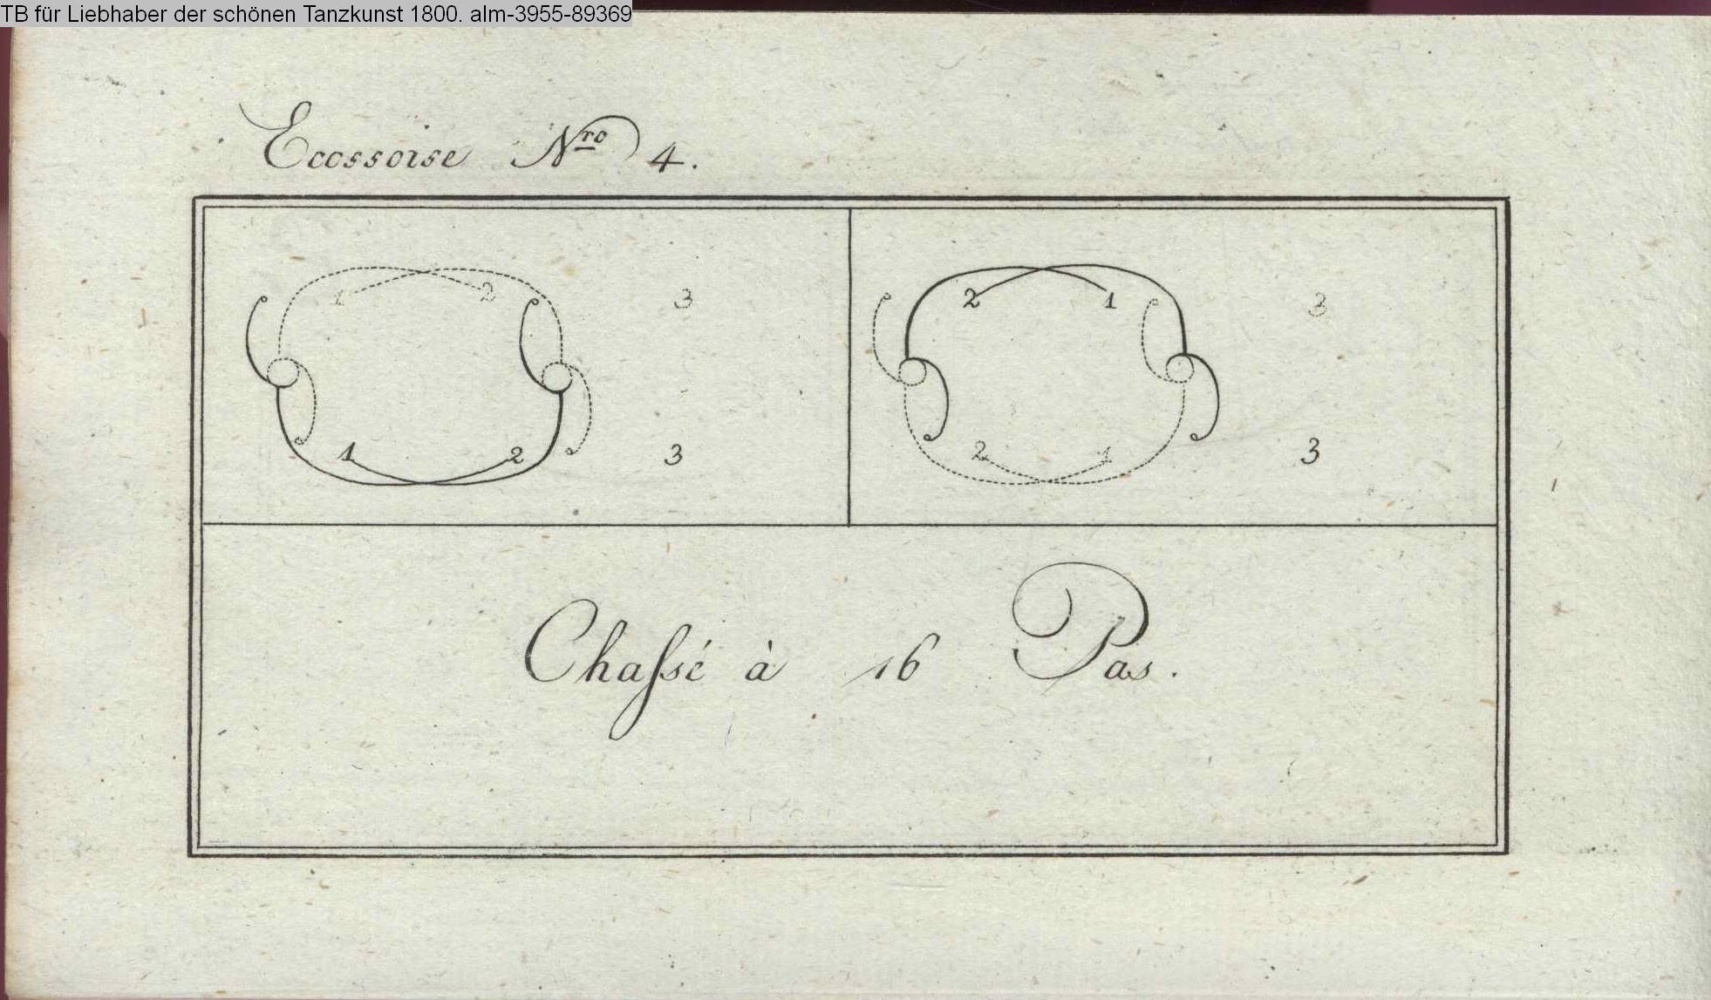 TB für Liebhaber der schönen Tanzkunst 1800. alm-3955-89369
Ecossoise Nro 4.
1 2 3 2 1 3
1 2 3 2 1 3
Chaſsé à 16 Pas.